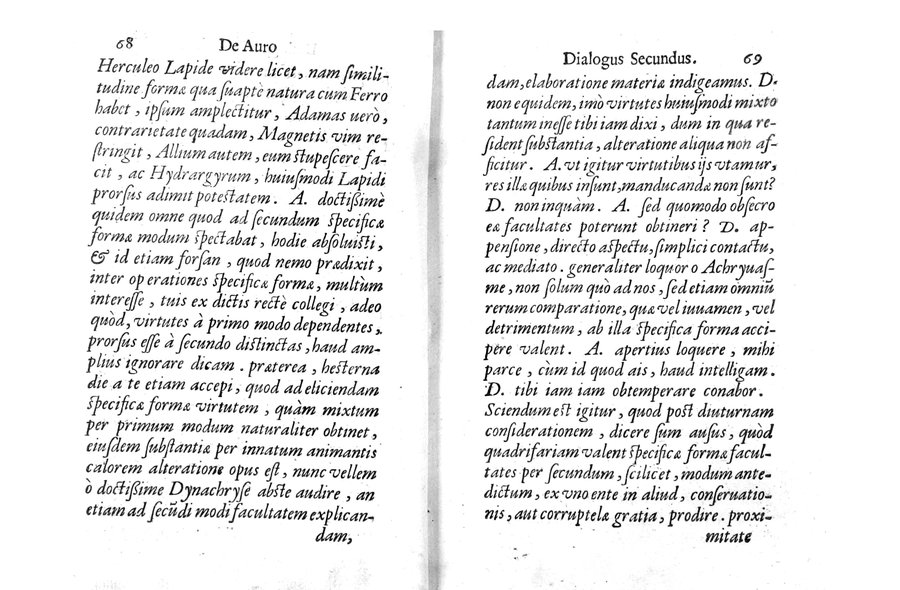 68 De Auro
Herculeo Lapide videre licet, nam ſimili-
tudine formæ qua ſuaptè natura cum Ferro
habet, ipſum amplectitur, Adamas uerò,
contrarietate quadam, Magnetis vim re-
ſtringit, Allium autem, eum ſtupeſcere fa-
cit, ac Hydrargyrum, huiuſmodi Lapidi
prorſus adimit poteſtatem. A. doctiſſimè
quidem omne quod ad ſecundum ſpecificæ
formæ modum ſpectabat, hodie abſoluiſti,
& id etiam forſan, quod nemo prædixit,
inter operationes ſpecificæ formæ, multùm
intereſſe, tuis ex dictis rectè collegi, adeo
quòd, virtutes à primo modo dependentes,
prorſus eſſe à ſecundo diſtinctas, haud am-
plius ignorare dicam. præterea, heſterna
die a te etiam accepi, quod ad eliciendam
ſpecificæ formæ virtutem, quàm mixtum
per primum modum naturaliter obtinet,
eiuſdem ſubſtantiæ per innatum animantis
calorem alteratione opus eſt, nunc vellem
ò doctiſſime Dynachryſe abſte audire, an
etiam ad ſecũdi modi facultatem explican-
dam,
Dialogus Secundus. 69
dam, elaboratione materiæ indigeamus. D.
non equidem, imò virtutes huiuſmodi mixto
tantum ineſſe tibi iam dixi, dum in qua re-
ſident ſubſtantia, alteratione aliqua non af-
ficitur. A. vt igitur virtutibus ijs vtamur,
res illæ quibus inſunt, manducandæ non ſunt?
D. non inquàm. A. ſed quomodo obſecro
eæ facultates poterunt obtineri? D. ap-
penſione, directo aſpectu, ſimplici contactu,
ac mediato. generaliter loquor o Achryuaſ-
me, non ſolum quò ad nos, ſed etiam omniũ
rerum comparatione, quæ vel iuuamen, vel
detrimentum, ab illa ſpecifica forma acci-
pere valent. A. apertius loquere, mihi
parce, cum id quod ais, haud intelligam.
D. tibi iam iam obtemperare conabor.
Sciendum eſt igitur, quod poſt diuturnam
conſiderationem, dicere ſum auſus, quòd
quadrifariam valent ſpecificæ formæ facul-
tates per ſecundum, ſcilicet, modum ante-
dictum, ex vno ente in aliud, conſeruatio-
nis, aut corruptelæ gratia, prodire. proxi-
mitate